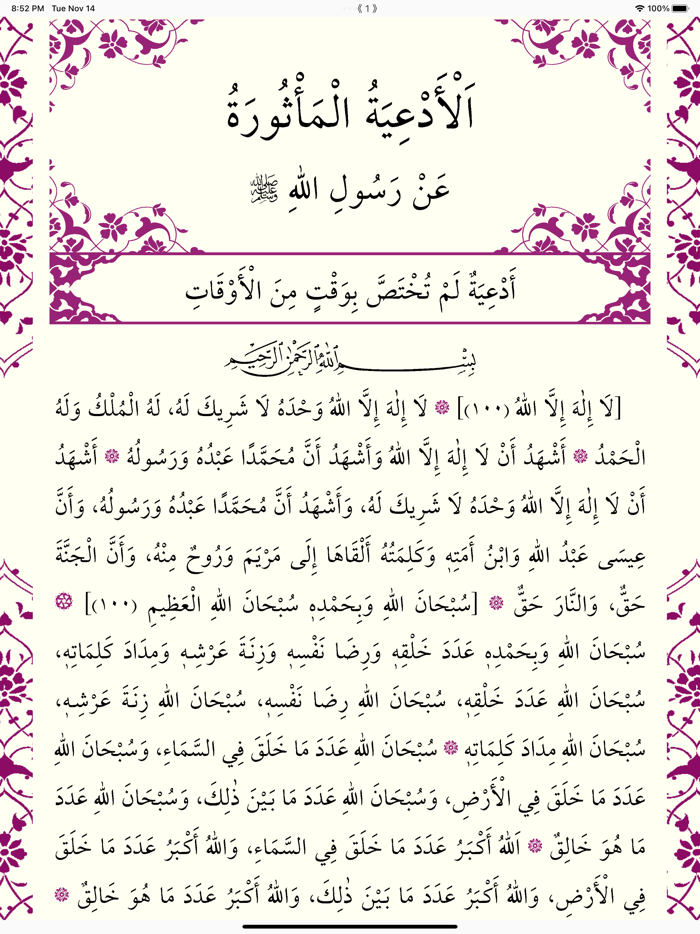 8:52 PM Tue Nov 14
《 1 》
100%
اَلْأَدْعِيَةُ الْمَأْثُورَةُ
عَنْ رَسُولِ اللهِ ﷺ
أَدْعِيَةٌ لَمْ تُخْتَصَّ بِوَقْتٍ مِنَ الْأَوْقَاتِ
بِسْمِ اللهِ الرَّحْمٰنِ الرَّحِيمِ
[لَا إِلٰهَ إِلَّا اللهُ (١٠٠)] ۞ لَا إِلٰهَ إِلَّا اللهُ وَحْدَهُ لَا شَرِيكَ لَهُ، لَهُ الْمُلْكُ وَلَهُ
الْحَمْدُ ۞ أَشْهَدُ أَنْ لَا إِلٰهَ إِلَّا اللهُ وَأَشْهَدُ أَنَّ مُحَمَّدًا عَبْدُهُ وَرَسُولُهُ ۞ أَشْهَدُ
أَنْ لَا إِلٰهَ إِلَّا اللهُ وَحْدَهُ لَا شَرِيكَ لَهُ، وَأَشْهَدُ أَنَّ مُحَمَّدًا عَبْدُهُ وَرَسُولُهُ، وَأَنَّ
عِيسَى عَبْدُ اللهِ وَابْنُ أَمَتِهٖ وَكَلِمَتُهُ أَلْقَاهَا إِلَى مَرْيَمَ وَرُوحٌ مِنْهُ، وَأَنَّ الْجَنَّةَ
حَقٌّ، وَالنَّارَ حَقٌّ ۞ [سُبْحَانَ اللهِ وَبِحَمْدِهٖ سُبْحَانَ اللهِ الْعَظِيمِ (١٠٠)] ۞
سُبْحَانَ اللهِ وَبِحَمْدِهٖ عَدَدَ خَلْقِهٖ وَرِضَا نَفْسِهٖ وَزِنَةَ عَرْشِهٖ وَمِدَادَ كَلِمَاتِهٖ،
سُبْحَانَ اللهِ عَدَدَ خَلْقِهٖ، سُبْحَانَ اللهِ رِضَا نَفْسِهٖ، سُبْحَانَ اللهِ زِنَةَ عَرْشِهٖ،
سُبْحَانَ اللهِ مِدَادَ كَلِمَاتِهٖ ۞ سُبْحَانَ اللهِ عَدَدَ مَا خَلَقَ فِي السَّمَاءِ، وَسُبْحَانَ اللهِ
عَدَدَ مَا خَلَقَ فِي الْأَرْضِ، وَسُبْحَانَ اللهِ عَدَدَ مَا بَيْنَ ذٰلِكَ، وَسُبْحَانَ اللهِ عَدَدَ
مَا هُوَ خَالِقٌ ۞ اَللهُ أَكْبَرُ عَدَدَ مَا خَلَقَ فِي السَّمَاءِ، وَاللهُ أَكْبَرُ عَدَدَ مَا خَلَقَ
فِي الْأَرْضِ، وَاللهُ أَكْبَرُ عَدَدَ مَا بَيْنَ ذٰلِكَ، وَاللهُ أَكْبَرُ عَدَدَ مَا هُوَ خَالِقٌ ۞